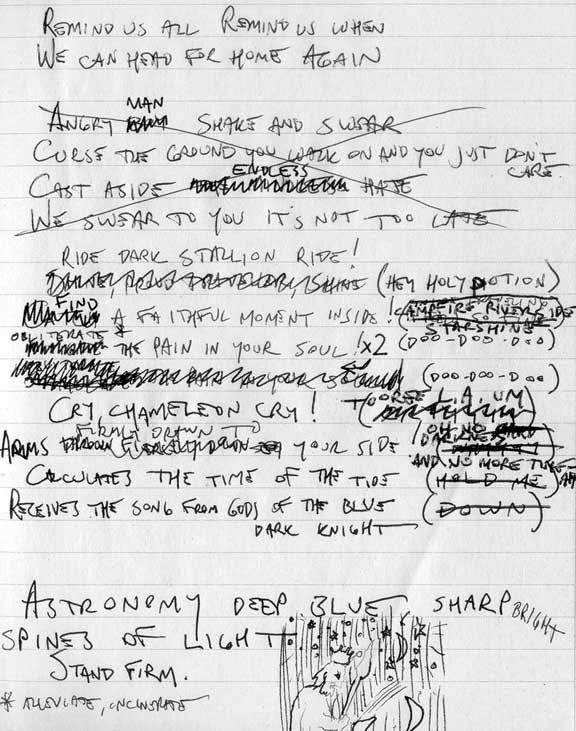 REMIND US ALL REMIND US WHEN
WE CAN HEAD FOR HOME AGAIN
MAN
ANGRY SHAKE AND SWEAR
CURSE THE GROUND YOU WALK ON AND YOU JUST DON'T CARE
ENDLESS
CAST ASIDE HATE
WE SWEAR TO YOU IT'S NOT TOO LATE
RIDE DARK STALLION RIDE!
(HEY HOLY POTION)
FIND
A FAITHFUL MOMENT INSIDE! (CAMPFIRE RIVERSIDE
STARSHINE
OBLITERATE *
THE PAIN IN YOUR SOUL! X2 (DOO-DOO-DOO)
(DOO-DOO-DOO)
CRY, CHAMELEON CRY!
FIRMLY DRAWN TO
OH NO
DARKNESS
ARMS YOUR SIDE
AND NO MORE
CALCULATES THE TIME OF THE TIDE (HOLD ME)
RECEIVES THE SONG FROM GODS OF THE BLUE (DOWN)
DARK KNIGHT
ASTRONOMY DEEP BLUE SHARP BRIGHT
SPINES OF LIGHT
STAND FIRM.
* ALLEVIATE, INCINERATE